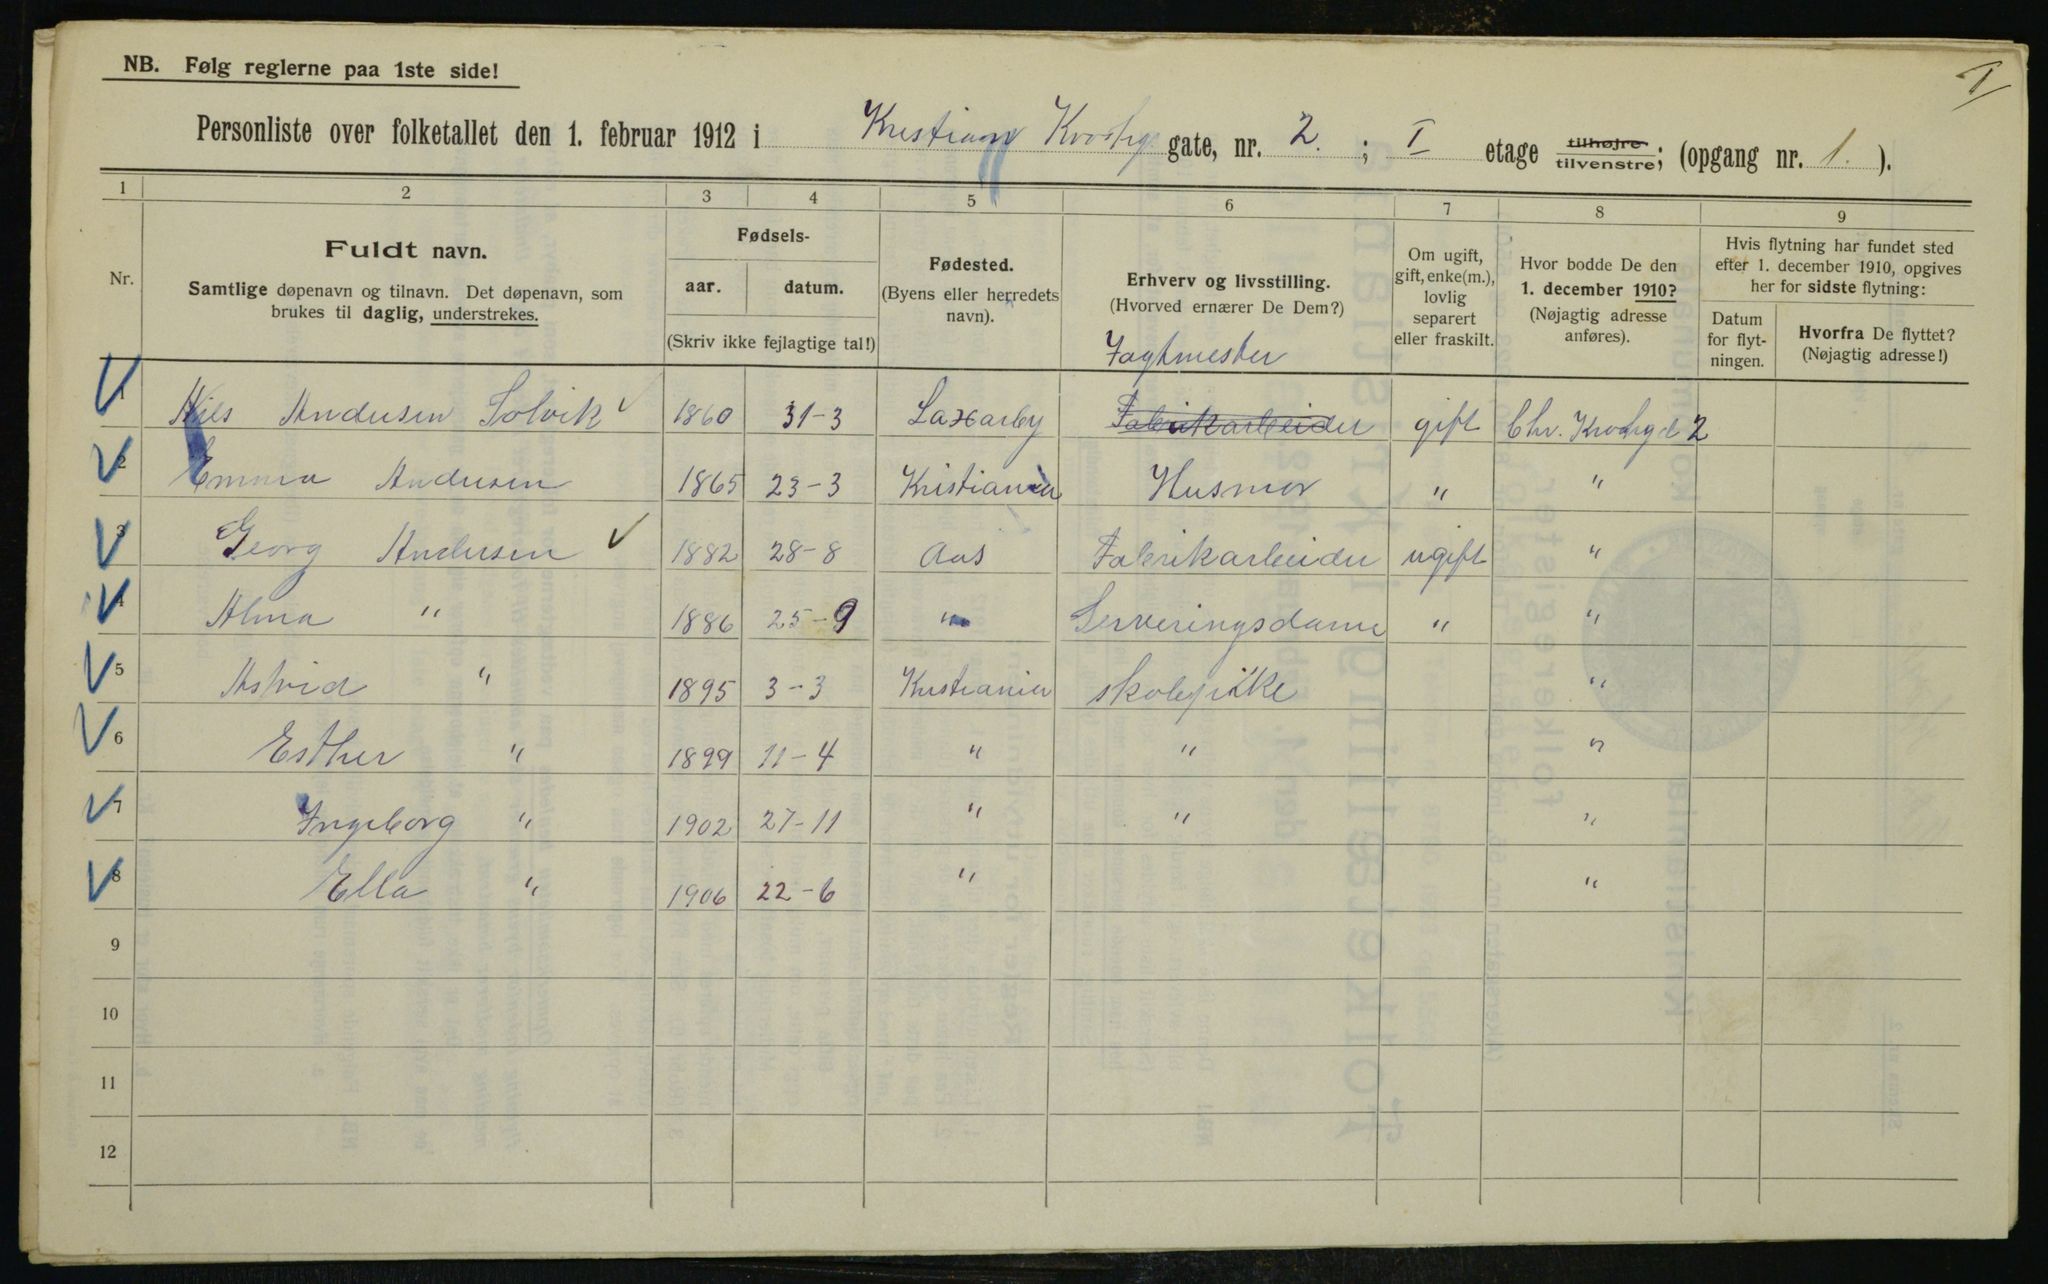 NB. Følg reglerne paa 1ste side!
I
Personliste over folketallet den 1. februar 1912 i Kristian Krohgs gate, nr. 2. ; I etage tilhøjre tilvenstre; (opgang nr. 1. ).
1 2 3 4 5 6 7 8 9
Nr.
Fuldt navn.
Samtlige døpenavn og tilnavn. Det døpenavn, som
brukes til daglig, understrekes.
Fødsels-
aar. datum.
(Skriv ikke fejlagtige tal!)
Fødested.
(Byens eller herredets
navn).
Erhverv og livsstilling.
(Hvorved ernærer De Dem?)
Om ugift,
gift, enke(m.),
lovlig
separert
eller fraskilt.
Hvor bodde De den
1. december 1910?
(Nøjagtig adresse
anføres).
Hvis flytning har fundet sted
efter 1. december 1910, opgives
her for sidste flytning:
Datum
for flyt-
ningen.
Hvorfra De flyttet?
(Nøjagtig adresse!)
Fagtmester
1 Nils Andersen Solvik 1860 31-3 Laxarby Fabrikarbeider gift Chr. Krohgs g 2
2 Emma Andersen 1865 23-3 Kristiania Husmor " "
3 Georg Andersen 1882 28-8 Aas Fabrikarbeider ugift "
4 Alma " 1886 25-9 " Serveringsdame " "
5 Astrid " 1895 3-3 Kristiania skolepike "
6 Esther " 1899 11-4 " " "
7 Ingeborg " 1902 27-11 " " "
8 Ella " 1906 22-6 " "
9
10
11
12